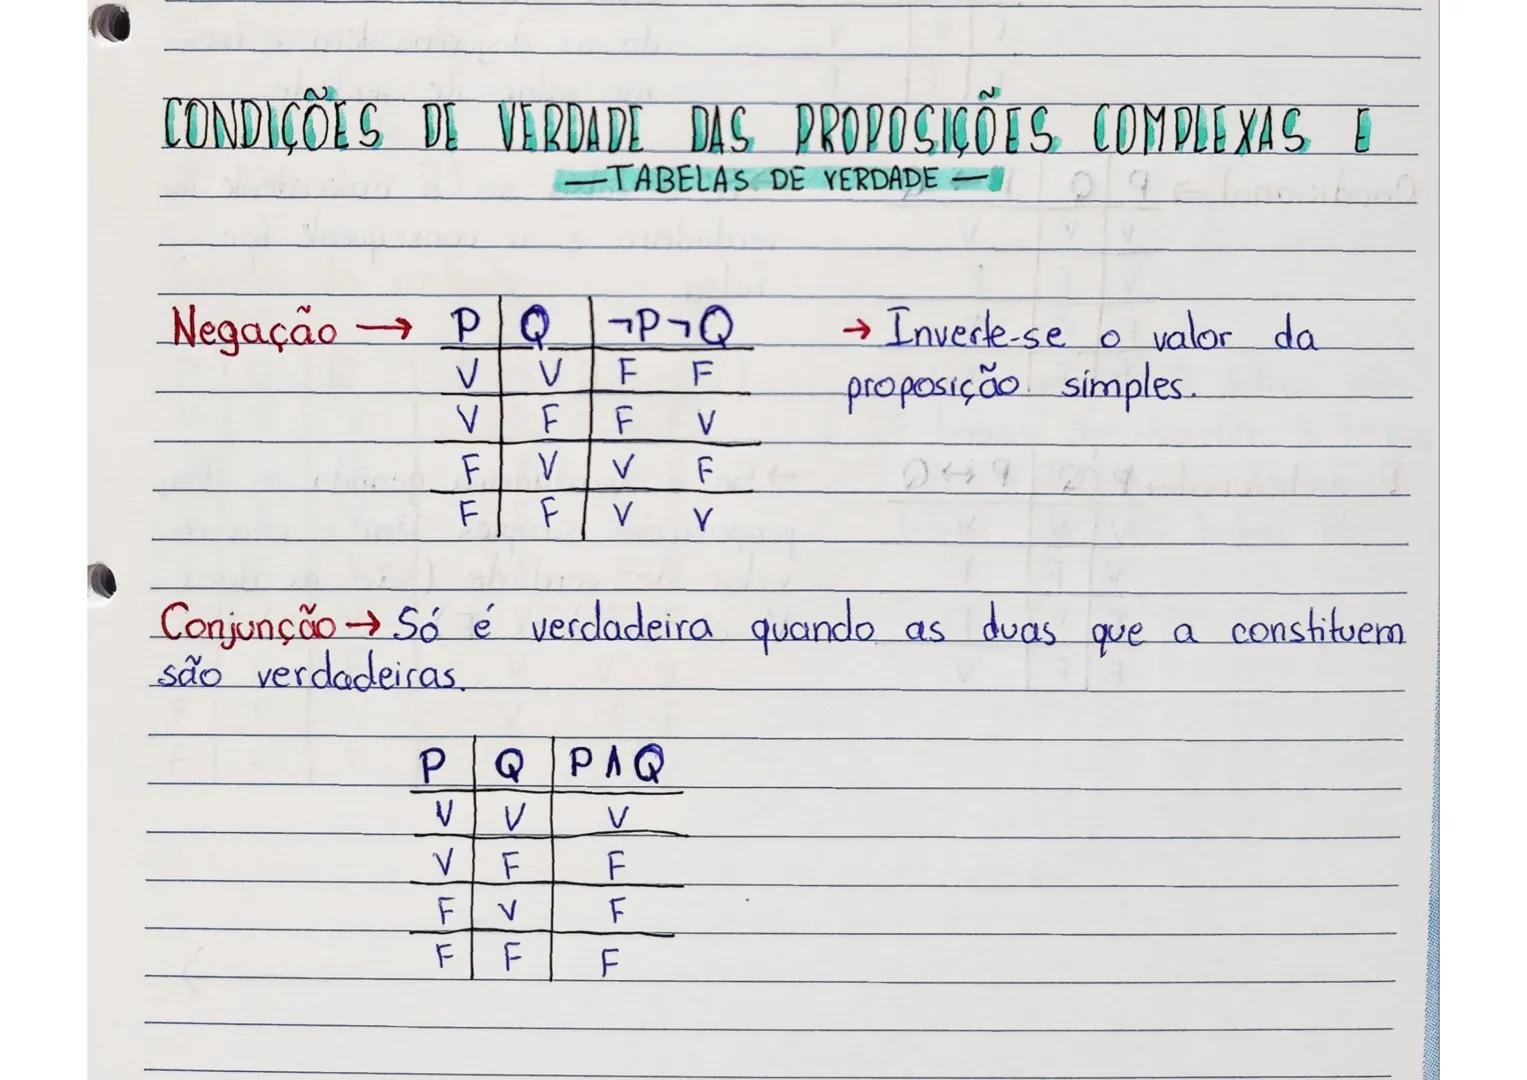 CONDIÇÕES DE VERDADE DAS PROPOSIÇÕES COMPLEXAS E
— TABELAS DE VERDADE —
Negação → P Q ¬P ¬Q → Inverte-se o valor da
V V F F proposição simples.
V F F V
F V V F
F F V V
Conjunção → Só é verdadeira quando as duas que a constituem
são verdadeiras.
P Q P ∧ Q
V V V
V F F
F V F
F F F